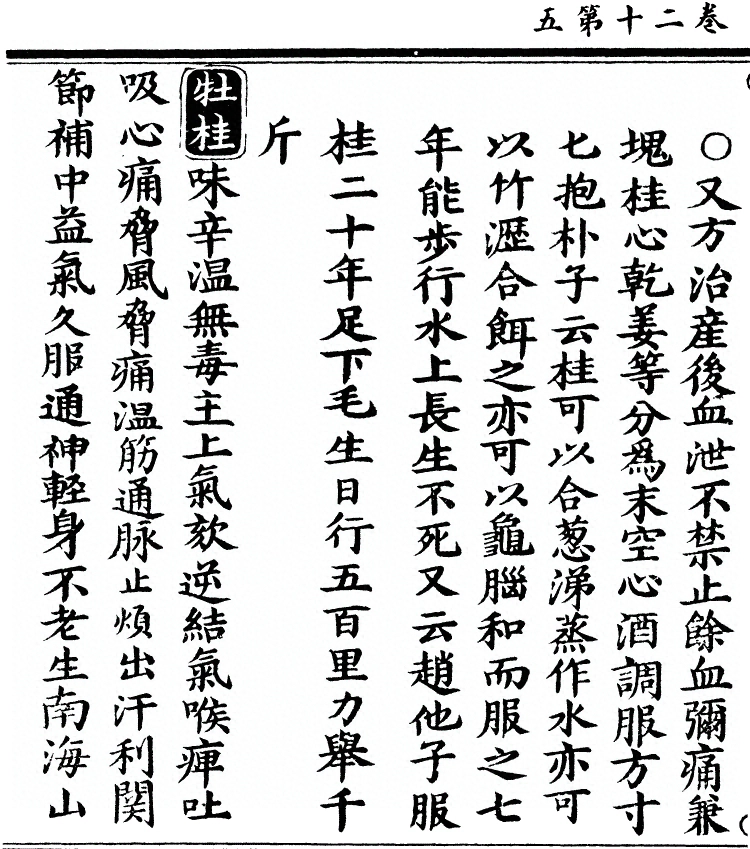 五第十二巻
○又方治産後血泄不禁止餘血彌痛兼
塊桂心乾姜等分為末空心酒調服方寸
匕抱朴子云桂可以合葱涕蒸作水亦可
以竹瀝合餌之亦可以龜腦和而服之七
年能步行水上長生不死又云趙他子服
桂二十年足下毛生日行五百里力舉千
斤
牡桂味辛温無毒主上氣欬逆結氣喉痺吐
吸心痛脅風脅痛温筋通脉止煩出汗利関
節補中益氣久服通神軽身不老生南海山